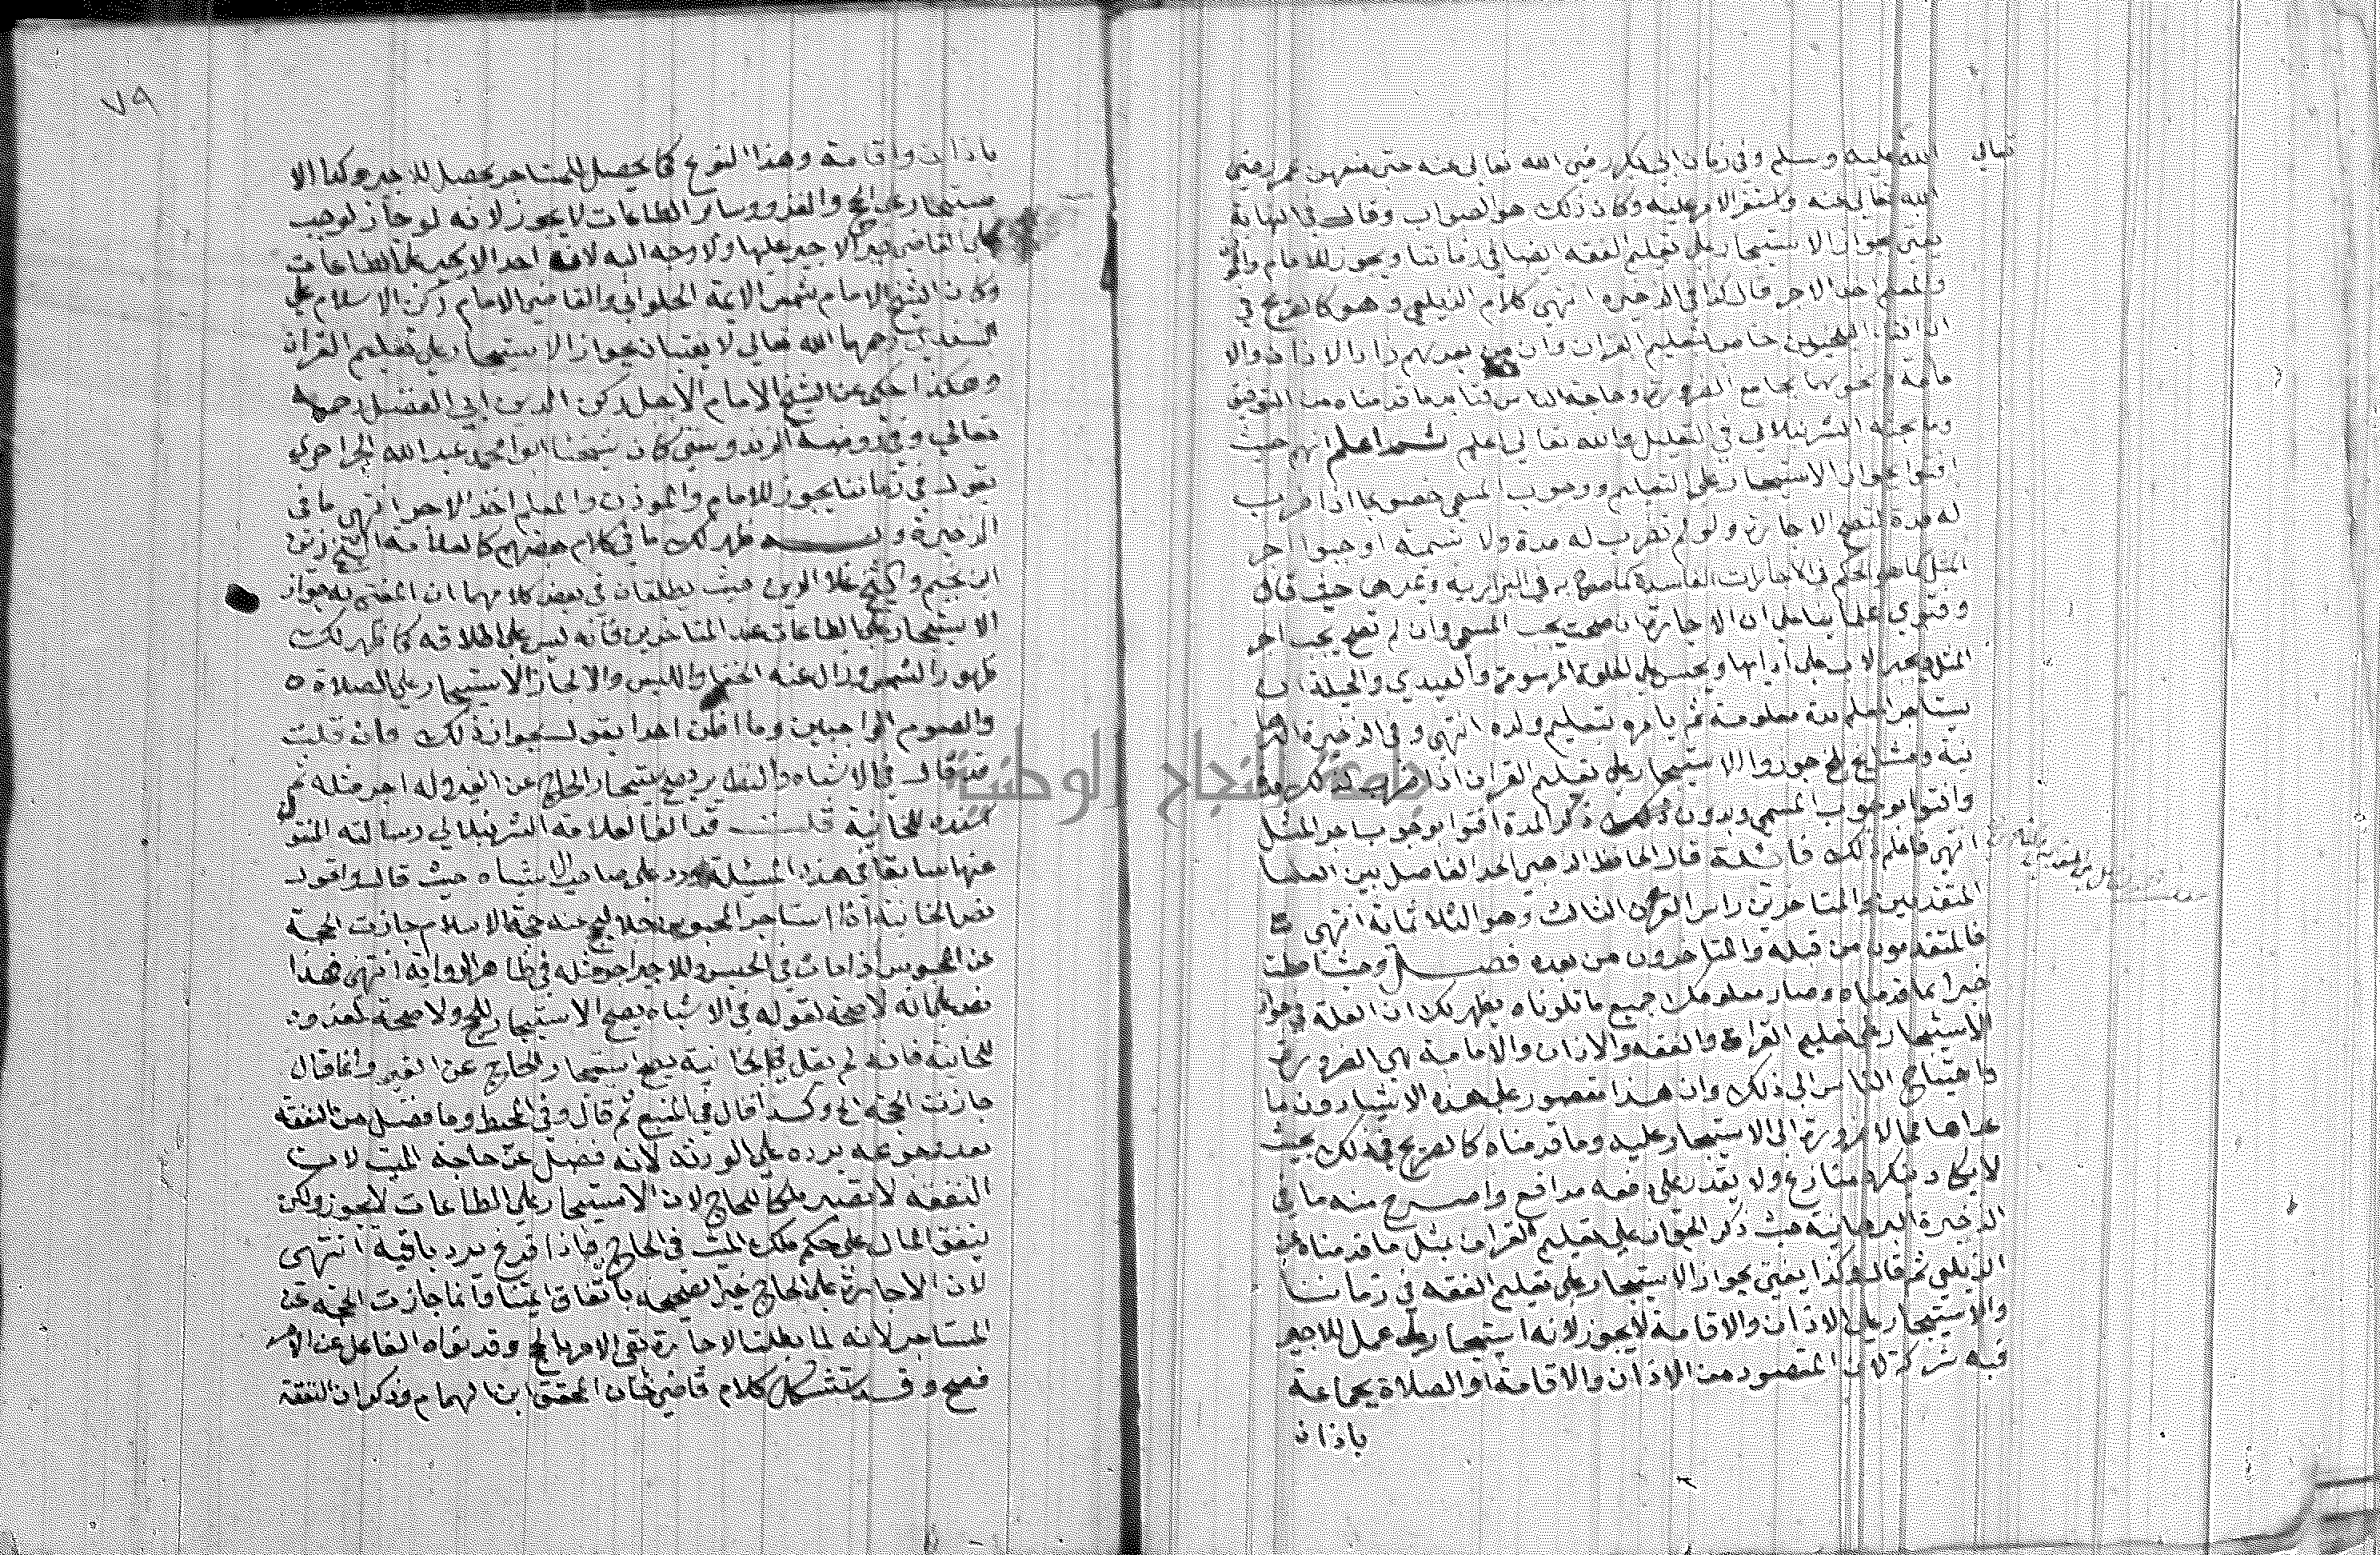 تعالى الله عليه وسلم وفي زمان ابي بكر رضي الله تعالى عنه حتى منعهن عمر رضي
الله تعالى عنه واستقر الامر عليه وكان ذلك هو الصواب وقال في النهاية
يفتى بجواز الاستيجار على تعليم الفقه ايضا في زماننا ويجوز للامام والمؤذن
والمعلم اخذ الاجر قال كذا في الذخيرة انتهى كلام الزيلعي وهو كالصريح في
ان افتاء البلخيين خاص بتعليم القران وان من بعدهم زاد الاذان والا
مامة ونحوهما بجامع الضرورة وحاجة الناس مع ما قدمناه من التوفيق
وما بحثه الشرنبلالي في التعليل والله تعالى اعلم ثم اعلم انهم حيث
افتوا بجواز الاستيجار على التعليم ووجوب المسمى خصوه بما اذا ضرب
له مدة لتصح الاجارة ولو لم تضرب له مدة ولا تسمية اوجبوا اجر
المثل كما هو الحكم في الاجارات الفاسدة كما صرح به في البزازية وغيرها حيث قال
وفتوى علمائنا على ان الاجارة ان صحت يجب المسمى وان لم تصح يجب اجر
المثل ويجبر الاب على أدائها ويحبس على الحلوة المرسومة والعيدي والحيلة ان
يستاجر المعلم مدة معلومة ثم يامره بتعليم ولده انتهى وفي الذخيرة البرها
نية ومشايخ بلخ جوزوا الاستيجار على تعليم القران اذا ضرب لذلك مدة
وافتوا بوجوب المسمى وبدون ذكر المدة افتوا بوجوب اجر المثل
انتهى فاعلم ذلك فائدة قال الحافظ الذهبي الحد الفاصل بين العلما
المتقدمين والمتاخرين راس القرن الثالث وهو الثلاثمائة انتهى
فالمتقدمون من قبله والمتاخرون من بعده فصل وحيث احطت
خبرا بما قدمناه وصار معلومك جميع ما تلوناه يظهر لك ان العلة في جواز
الاستيجار على تعليم القران والفقه والاذان والامامة هي الضرورة
واحتياج الناس الى ذلك وان هذا مقصور على هذه الاشياء دون ما
عداها مما لا ضرورة الى الاستيجار عليه وما قدمناه كالصريح في ذلك بحيث
لا يكاد ينكره منازع ولا يقدر على دفعه مدافع واصرح منه ما في
الذخيرة البرهانية حيث ذكر الجواز على تعليم القران بمثل ما قدمناه عن
الزيلعي ثم قال وكذا يفتى بجواز الاستيجار على تعليم الفقه في زماننا
والاستيجار على الاذان والاقامة لا يجوز لانه استيجار على عمل للاجير
فيه شركة لان المقصود من الاذان والاقامة أو الصلاة بجماعة
باذان
٧٩
باذان واقامة وهذا النوع كما يحصل للمستاجر يحصل للاجير وكذا الا
ستيجار على الحج والغزو وسائر الطاعات لا يجوز لانه لو جاز لوجب
على القاضي جبر الاجير عليها ولا وجه اليه لان احدا لا يجبر على الطاعات
وكان الشيخ الامام شمس الايمة الحلواني والقاضي الامام ركن الاسلام على
السغدي رحمهما الله تعالى لا يفتيان بجواز الاستيجار على تعليم القران
وهكذا حكي عن الشيخ الامام الاجل ركن الدين ابي الفضل رحمه
تعالى وفي روضة الزندويستي كان شيخنا ابو محمد عبد الله الجراحري
يقول في زماننا يجوز للامام والموذن والمعلم اخذ الاجر انتهى ما في
الذخيرة وبه ظهر لك ما في كلام بعضهم كالعلامة الشيخ زين
ابن نجيم والشيخ علاء الدين حيث يطلقان في بعض كلامهما ان المفتى به جواز
الاستيجار على الطاعات عند المتاخرين فانه ليس على اطلاقه كما ظهر لك
ظهور الشمس وزال عنه الخفا واللبس والا لجاز الاستيجار على الصلاة
والصوم الواجبين وما اظن احدا يقول بجواز ذلك فان قلت
قد قال في الاشباه والنظاير يصح استيجار الحاج عن الغير وله اجر مثله ثم
اسنده للخانية قلت قد الف العلامة الشرنبلالي رسالته المنقول
عنها سابقا في هذه المسئلة ورد على صاحب الاشباه حيث قال واقول
نص الخانية اذا استاجر المحبوس رجلا ليحج عنه حجة الاسلام جازت الحجة
عن المحبوس اذا مات في الحبس وللاجير اجر مثله في ظاهر الرواية انتهى فهذا
نص على انه لا صحة لقوله في الاشباه يصح الاستيجار للحج ولا صحة لعزوه
للخانية فانه لم يقل في الخانية يصح استيجار الحاج عن الغير وانما قال
جازت الحجة الخ وكذا قال في المنبع ثم قال وفي المحيط وما فضل من النفقة
بعد رجوعه يرده على الورثة لانه فضل عن حاجة الميت لان
النفقة لا تصير ملكا للحاج لان الاستيجار على الطاعات لا يجوز ولكن
ينفق المال على حكم ملك الميت في الحاج فاذا فرغ يرد باقيه انتهى
لان الاجارة على الحاج غير صحيحة باتفاق ايمتنا فانما جازت الحجة عن
المستاجر لانه لما بطلت الاجارة بقي الامر بالحج وقد نواه الفاعل عن الامر
فصح وقد استشكل كلام قاضي خان المحقق ابن الهمام وذكر ان النفقة
جامعة النجاح الوطنية